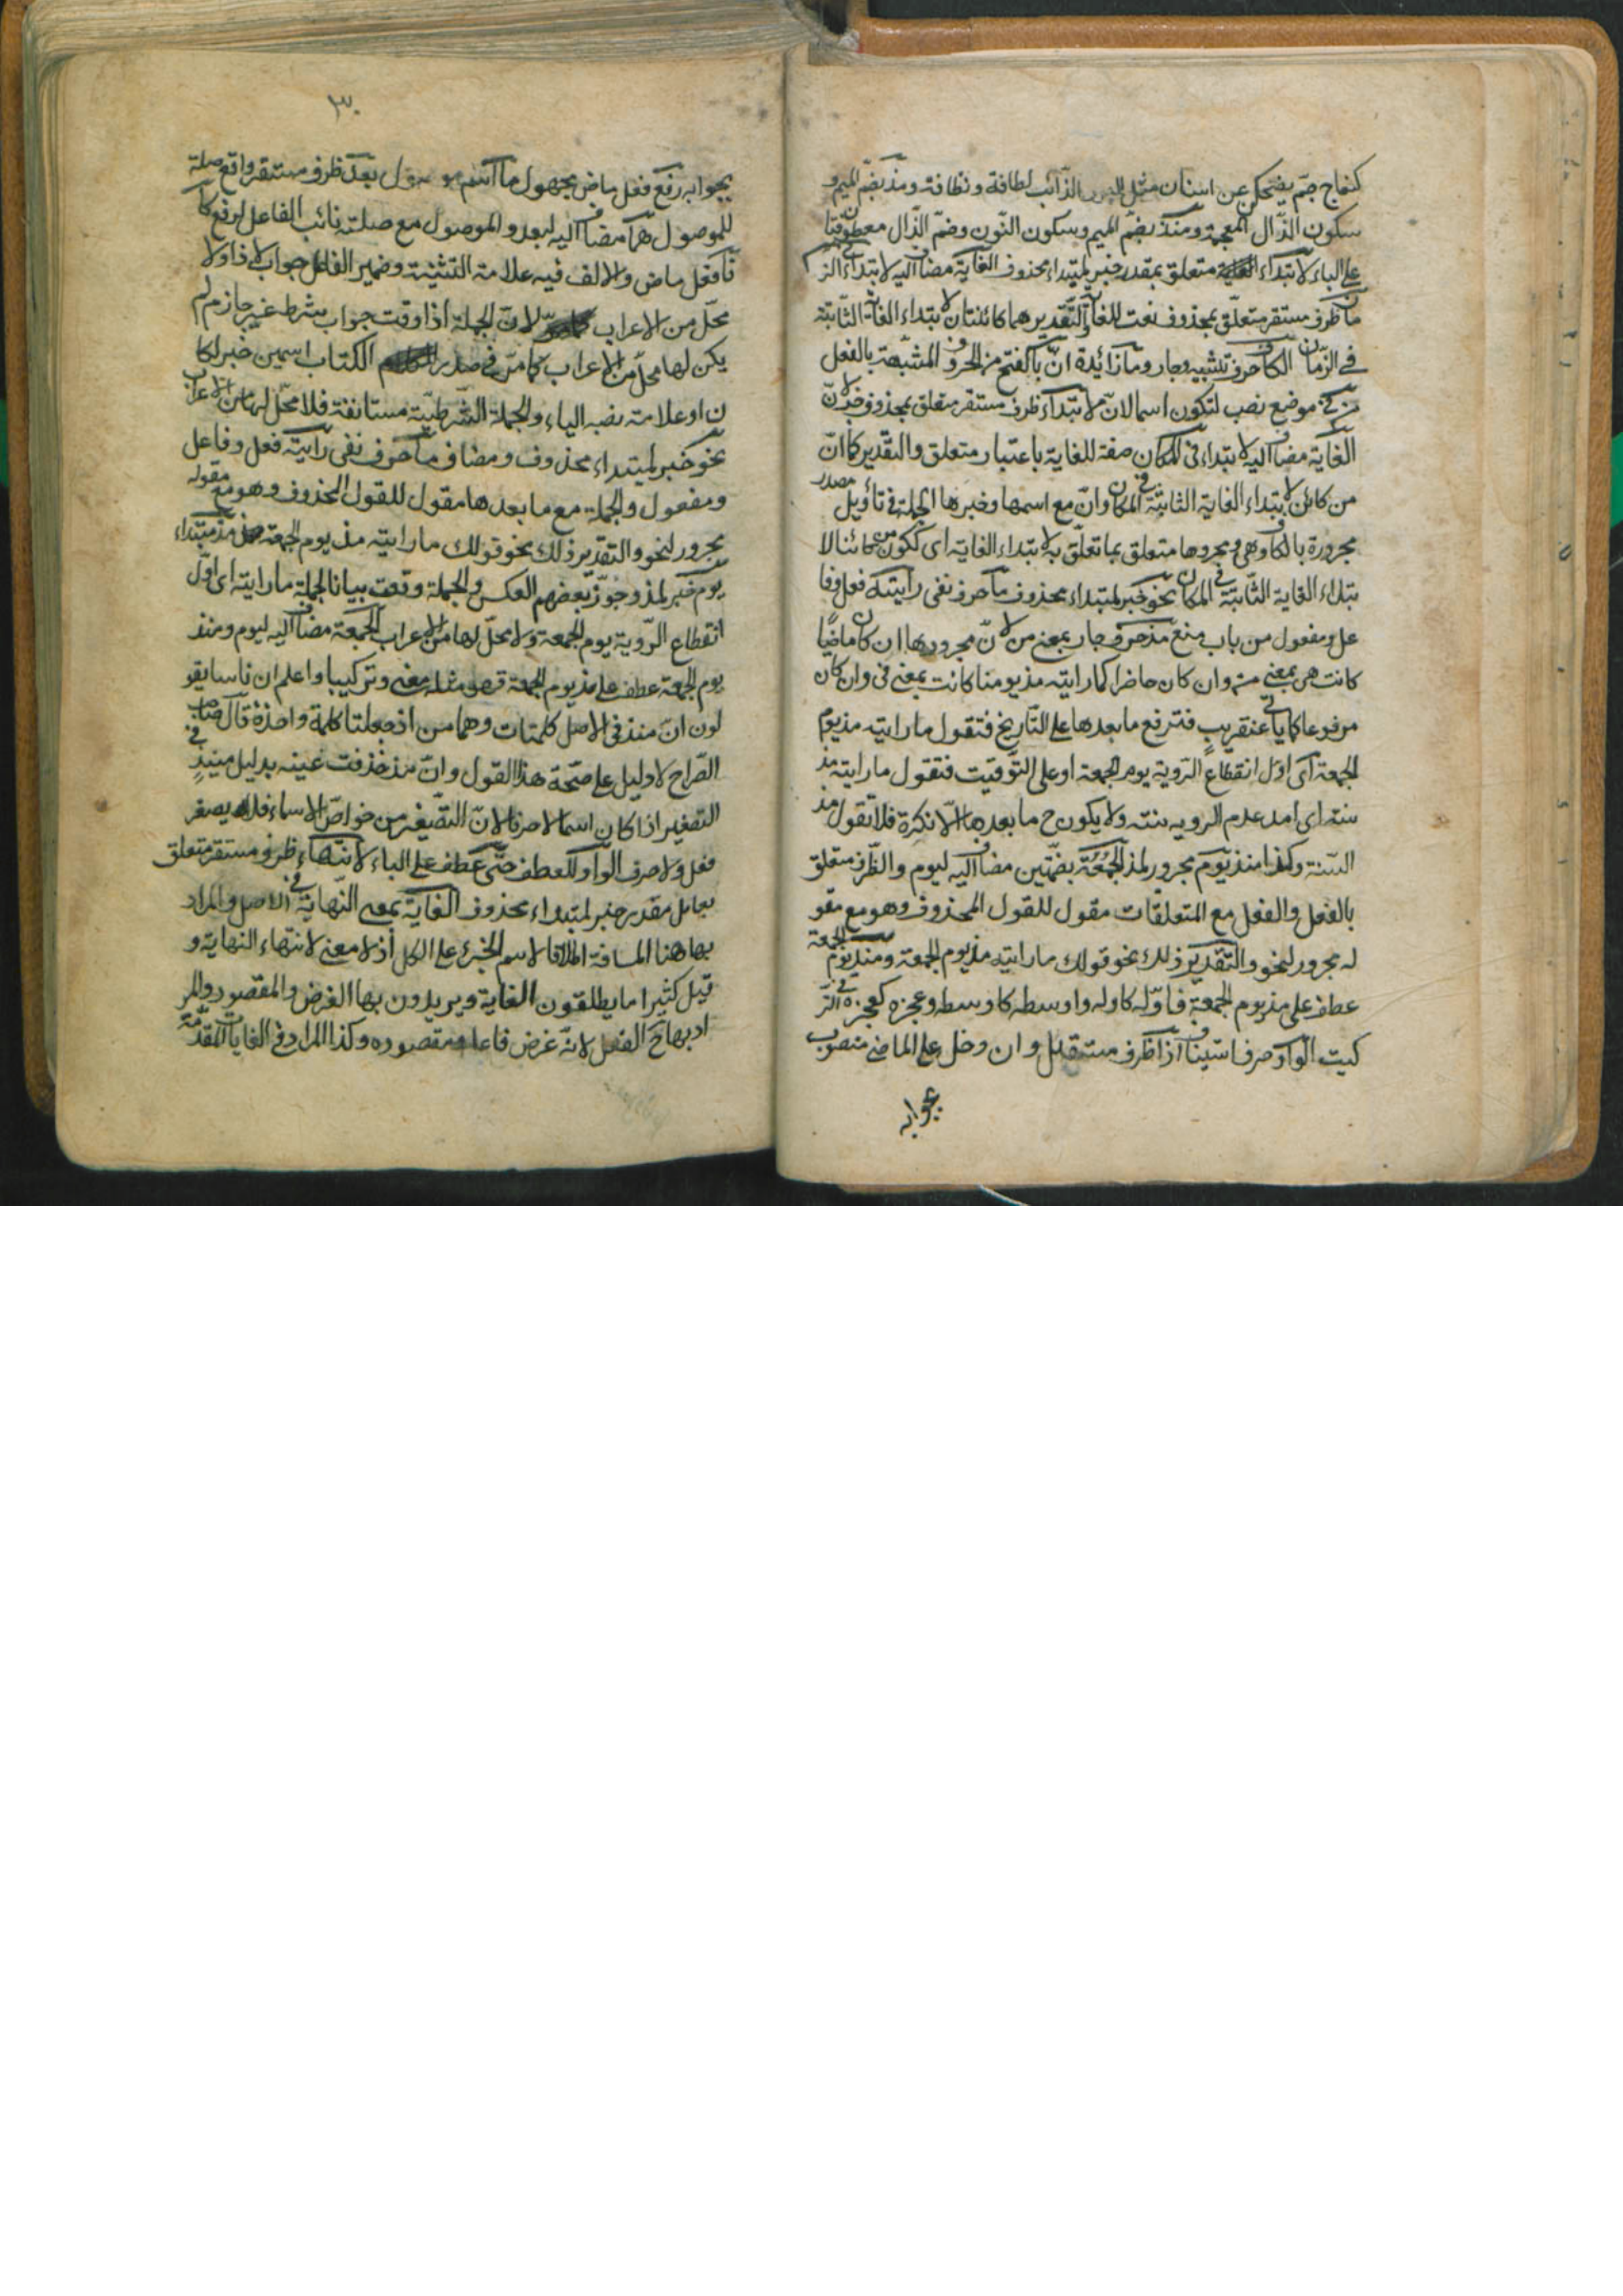 كنعاج جمّ يضحكن عن اسنان مثل البرد الذّائب لطافة ونظافة ومذ بضمّ الميم و
سكون الذّال المعجمة ومنذ بضمّ الميم وسكون النّون وضمّ الذّال معطوفتان
على الباء لابتداء الغاية متعلق بمقدر خبر لمبتداء محذوف الغاية مضاف اليه لابتداء في الز
مان ظرف مستقر متعلّق بمحذوف نعت للغاية والتّقدير هما كائنتان لابتداء الغاية الثّابتة
في الزّمان الكاف حرف تشبيه وجار وما زائدة انّ بالفتح من الحروف المشبّهة بالفعل
من في موضع نصب لتكون اسما لانّ لابتداء ظرف مستقر متعلق بمحذوف خبر لانّ
الغاية مضاف اليه لابتداء في المكان صفة للغاية باعتبار متعلق والتقدير كما انّ
من كائن لابتداء الغاية الثابتة في المكان وانّ مع اسمها وخبرها الجملة في تأويل مصدر
مجرورة بالكاف وهي ومجرورها متعلق بما تعلّق به لابتداء الغاية اى ككون من كائنا لا
بتداء الغاية الثّابتة في المكان نحو خبر لمبتداء محذوف ما حرف نفى رأيته فعل وفا
عل ومفعول من باب منع مذ حرف جار بمعنى من لانّ مجرورها ان كان ماضيًا
كانت هى بمعنى من وان كان حاضرا كما رايته مذ يومنا كانت بمعنى فى وان كان
مرفوعا كما يأتى عنقريب فترفع ما بعدها على التّاريخ فتقول ما رايته مذ يوم
الجمعة اى اوّل انقطاع الرّوية يوم الجمعة او على التّوقيت فتقول ما رايته مذ
سنة اى امد عدم الرويه سنته ولا يكون ح ما بعدها الّا نكرة فلا تقول مذ
السّنة وكذا منذ يوم مجرور لمذ الجمعة بضمّتين مضاف اليه ليوم والظّرف متعلق
بالفعل والفعل مع المتعلقات مقول للقول المحذوف وهو مع مقو
له مجرور لنحو والتّقدير ذلك نحو قولك ما رايته مذ يوم الجمعة ومنذ يوم الجمعة
عطف على مذ يوم الجمعة فاوّله كاوله واوسطه كاوسطه وعجزه كعجزه في التّر
كيب الواو حرف استيناف اذا ظرف مستقبل وان دخل على الماضى منصوب
بجوابه
٣٠
بجوابه رفع فعل ماض مجهول ما اسم موصول بعد ظرف مستقر واقع صلة
للموصول هما مضاف اليه لبعد والموصول مع صلته نائب الفاعل لرفع كا
نا فعل ماض والالف فيه علامة التثنية وضمير الفاعل جواب لاذا ولا
محلّ من الاعراب لانّ الجملة اذا وقعت جواب شرط غير جازم لم
يكن لها محلّ من الاعراب كما مرّ في صدر الكتاب اسمين خبر لكا
ن او علامة نصبه الياء والجملة الشّرطيّة مستانفة فلا محلّ لها من الاعراب
نحو خبر لمبتداء محذوف ومضاف ما حرف نفى رايته فعل وفاعل
ومفعول والجملة مع ما بعدها مقول للقول المحذوف وهو مع مقوله
مجرور لنحو والتقدير ذلك نحو قولك ما رايته مذ يوم الجمعة مذ مبتداء
يوم خبر لمذ وجوّز بعضهم العكس والجملة وقعت بيانا لجملة ما رايته اى اوّل
انقطاع الرّوية يوم الجمعة ولا محلّ لها من الاعراب الجمعة مضاف اليه ليوم ومنذ
يوم الجمعة عطف على مذ يوم الجمعة فهو مثله معنى وتركيبا واعلم ان ناسا يقو
لون انّ منذ في الاصل كلمتان وهما من اذ جعلتا كلمة واحدة قال صاحب
الصّراح لا دليل على صحّة هذا القول وانّ مذ حذفت عينه بدليل منيذ في
التصغير اذا كان اسما لا حرفا لانّ التّصغير من خواصّ الاسماء فلا يصغر
فعل ولا حرف الواو للعطف حتّى عطف على الباء لانتهاء ظرف مستقر متعلق
بعامل مقدر خبر لمبتداء محذوف الغاية بمعنى النّهاية في الاصل والمراد
بها هنا المسافة اطلاقا لاسم الجزء على الكل اذ لا معنى لانتهاء النهاية و
قيل كثيرا ما يطلقون الغاية ويريدون بها الغرض والمقصود والمر
اد بها ح الفعل لانّه غرض فاعله ومقصوده وكذا المراد في الغايات المقدّمة